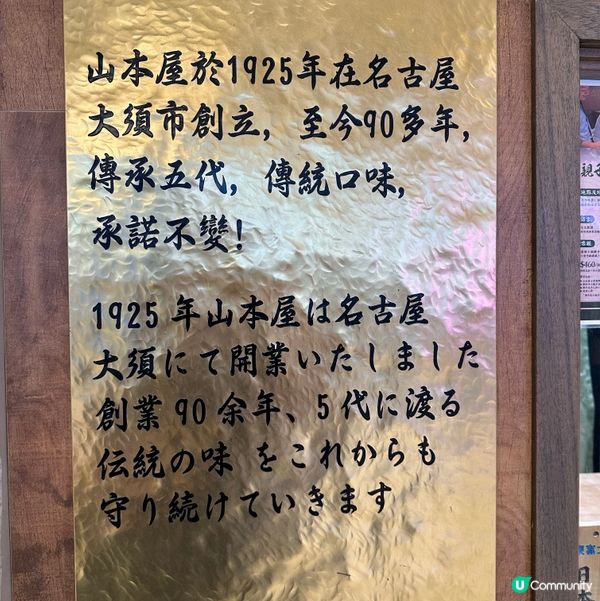 山本屋於1925年在名古屋
大須市創立，至今90多年，
傳承五代，傳統口味，
承諾不變！
1925年山本屋は名古屋
大須にて開業いたしました
創業90余年、5代に渡る
伝統の味 をこれからも
守り続けていきます
$460
日本
U Community